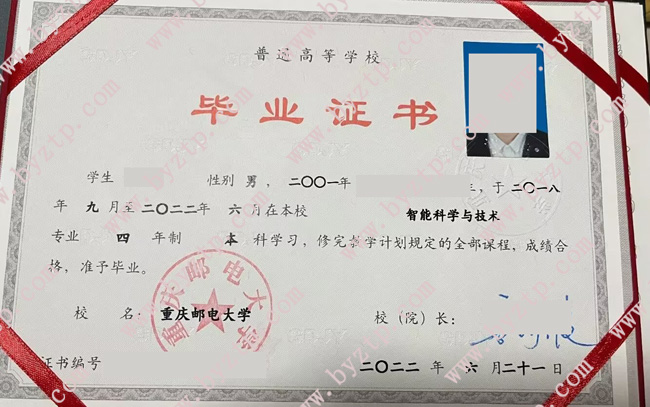 普通高等学校
毕业证书
学生 性别 男，二〇〇一年 生，于二〇一八
年 九 月至二〇二二年 六 月在本校 智能科学与技术
专业 四 年制 本 科学习，修完教学计划规定的全部课程，成绩合
格，准予毕业。
校 名：重庆邮电大学 校（院）长：
证书编号 二〇二二 年 六 月二十一日
重庆邮电大学
www.byztp.com